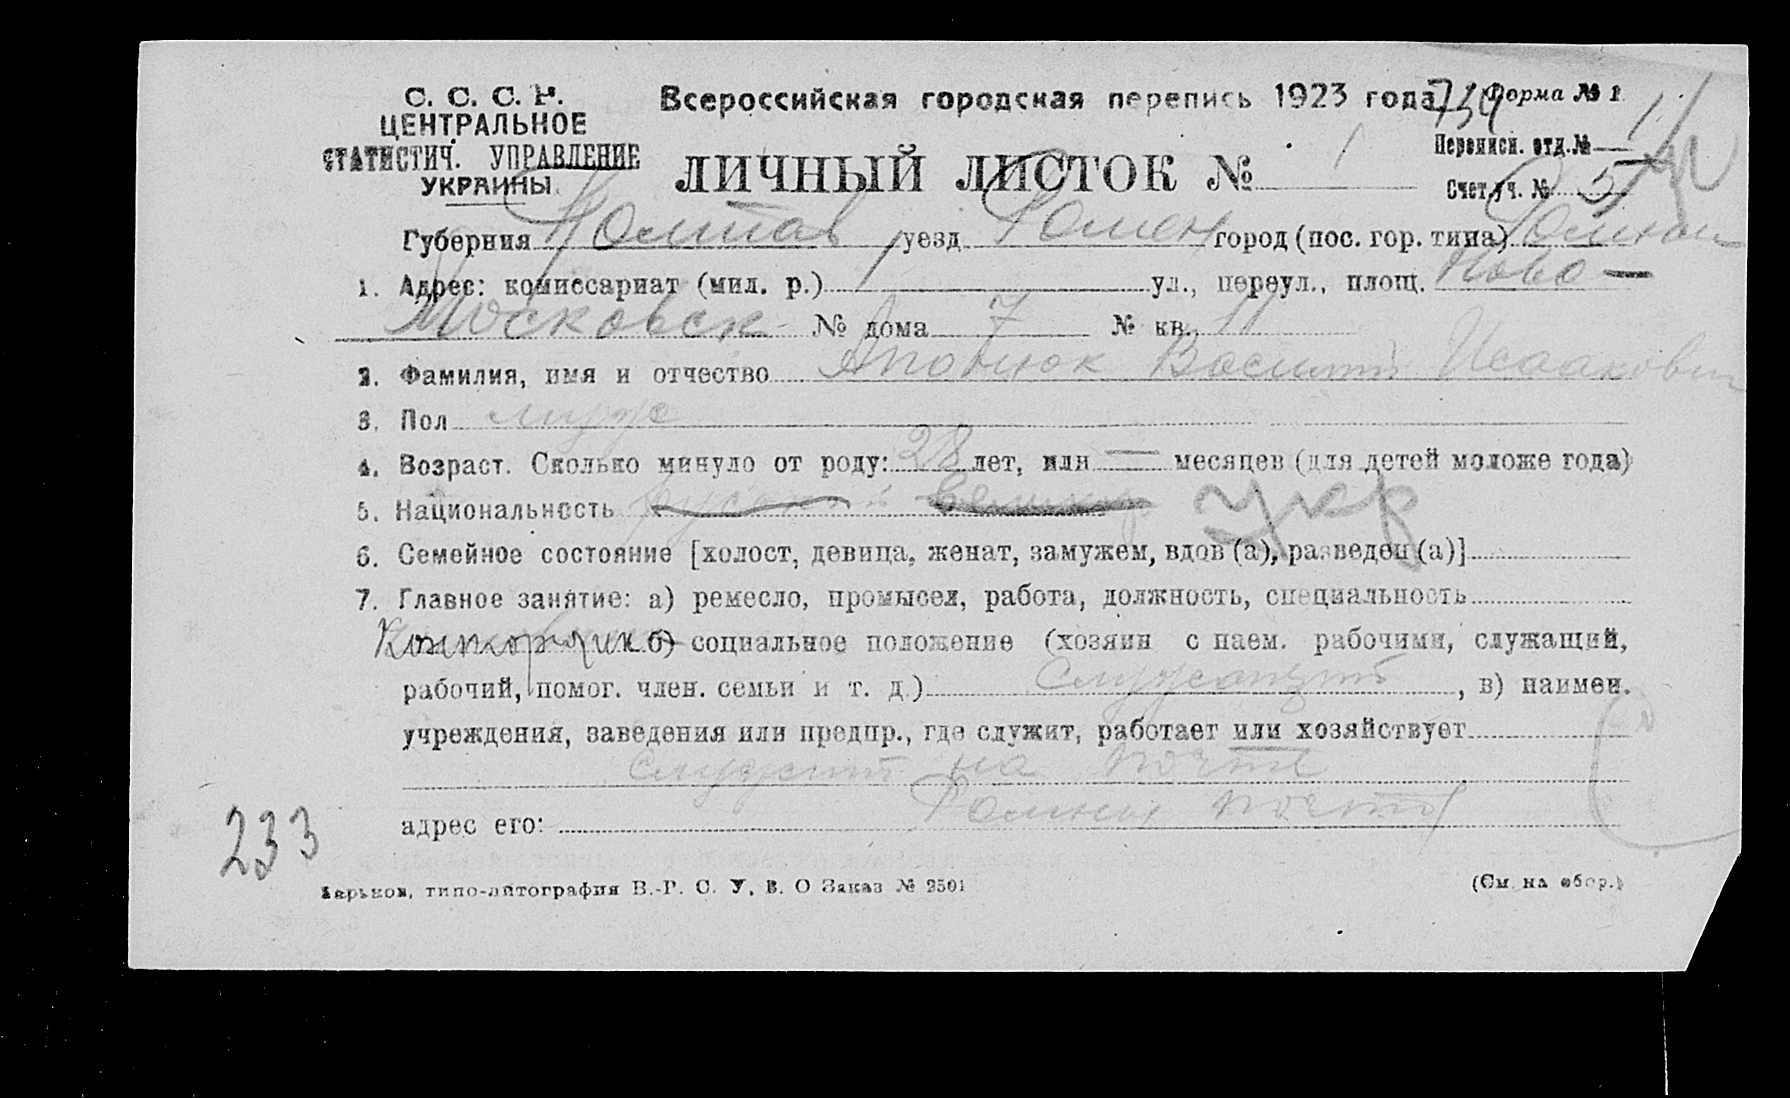 С. С. С. Р.
ЦЕНТРАЛЬНОЕ
СТАТИСТИЧ. УПРАВЛЕНИЕ
УКРАИНЫ.
Всероссийская городская перепись 1923 года.
Форма № 1
Переписн. отд. № 1
ЛИЧНЫЙ ЛИСТОК № 1
Счет. уч. № 5
Губерния Полтав уезд Ромен город (пос. гор. типа) Ромны
1. Адрес: комиссариат (мил. р.) ул., переул., площ. Ново—
Московск № дома 7 № кв. 11
2. Фамилия, имя и отчество Василий Исаакович
3. Пол муж
4. Возраст. Сколько минуло от роду: 28 лет, или — месяцев (для детей моложе года)
5. Национальность Укр
6. Семейное состояние [холост, девица, женат, замужем, вдов (а), разведен (а)]
7. Главное занятие: а) ремесло, промысел, работа, должность, специальность
Конторщик б) социальное положение (хозяин с наем. рабочими, служащий,
рабочий, помог. член. семьи и т. д.) Служащий, в) наимен.
учреждения, заведения или предпр., где служит, работает или хозяйствует
служит на почте
адрес его: Ромны почта
233
Харьков, типо-литография В.-Р. С. У. В. О Заказ № 2501
(См. на обор.)